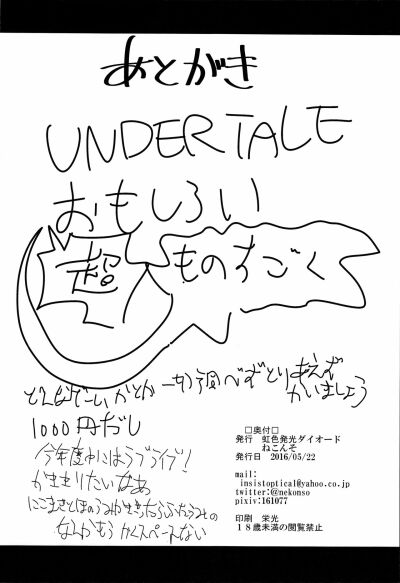 あとがき
UNDERTALE
おもしろい
超
ものすごく
どんなゲームかとか一切調べずとりあえず
かいましょう
1000円だし
今年度中にはラブライブ!
かききりたいなあ
□奥付□
発行 虹色発光ダイオード
ねこんそ
発行日 2016/05/22
mail:
insistoptical@yahoo.co.jp
twitter:@nekonso
pixiv:161077
印刷 栄光
18歳未満の閲覧禁止